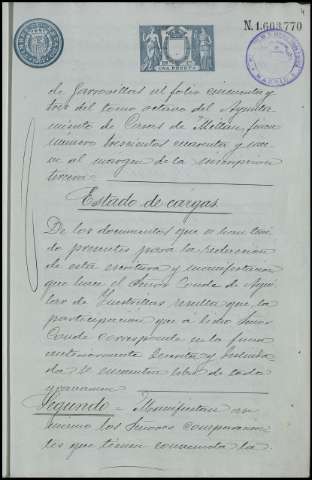 4
N.1.603,770
de Garrovillas al folio cincuenta y
tres del tomo octavo del Ayunta
miento de Casas de Millan, finca
numero trescientos cuarenta y nue
ve al margen de la inscripcion
tercera.
Estado de cargas
De los documentos que se han teni
do presentes para la redaccion
de esta escritura y manifestacion
que hace el Señor Conde de Agui
lar de Inestrillas resulta que la
participacion que á dicho Señor
Conde corresponde en la finca
anteriormente descrita y deslinda
da se encuentra libre de todo
gravamen
Segundo = Manifiestan asi
mismo los Señores comparecien
tes que tienen convenida la